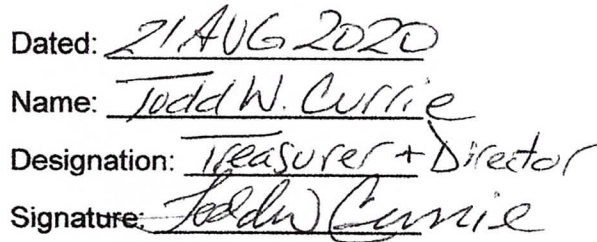 Dated: 21 AUG 2020
Name: Todd W. Currie
Designation: Treasurer + Director
Signature: Todd W Currie